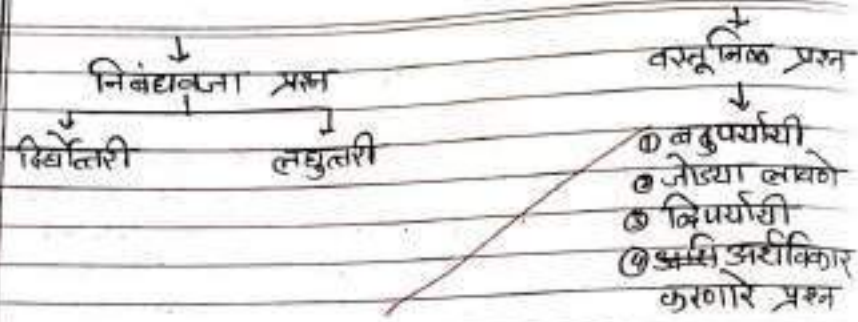 निबंधवजा प्रश्न
दिर्घोत्तरी
लघुत्तरी
वस्तूनिष्ठ प्रश्न
① बहुपर्यायी
② जोड्या लावणे
③ द्विपर्यायी
④ अर्थविकार
करणारे प्रश्न